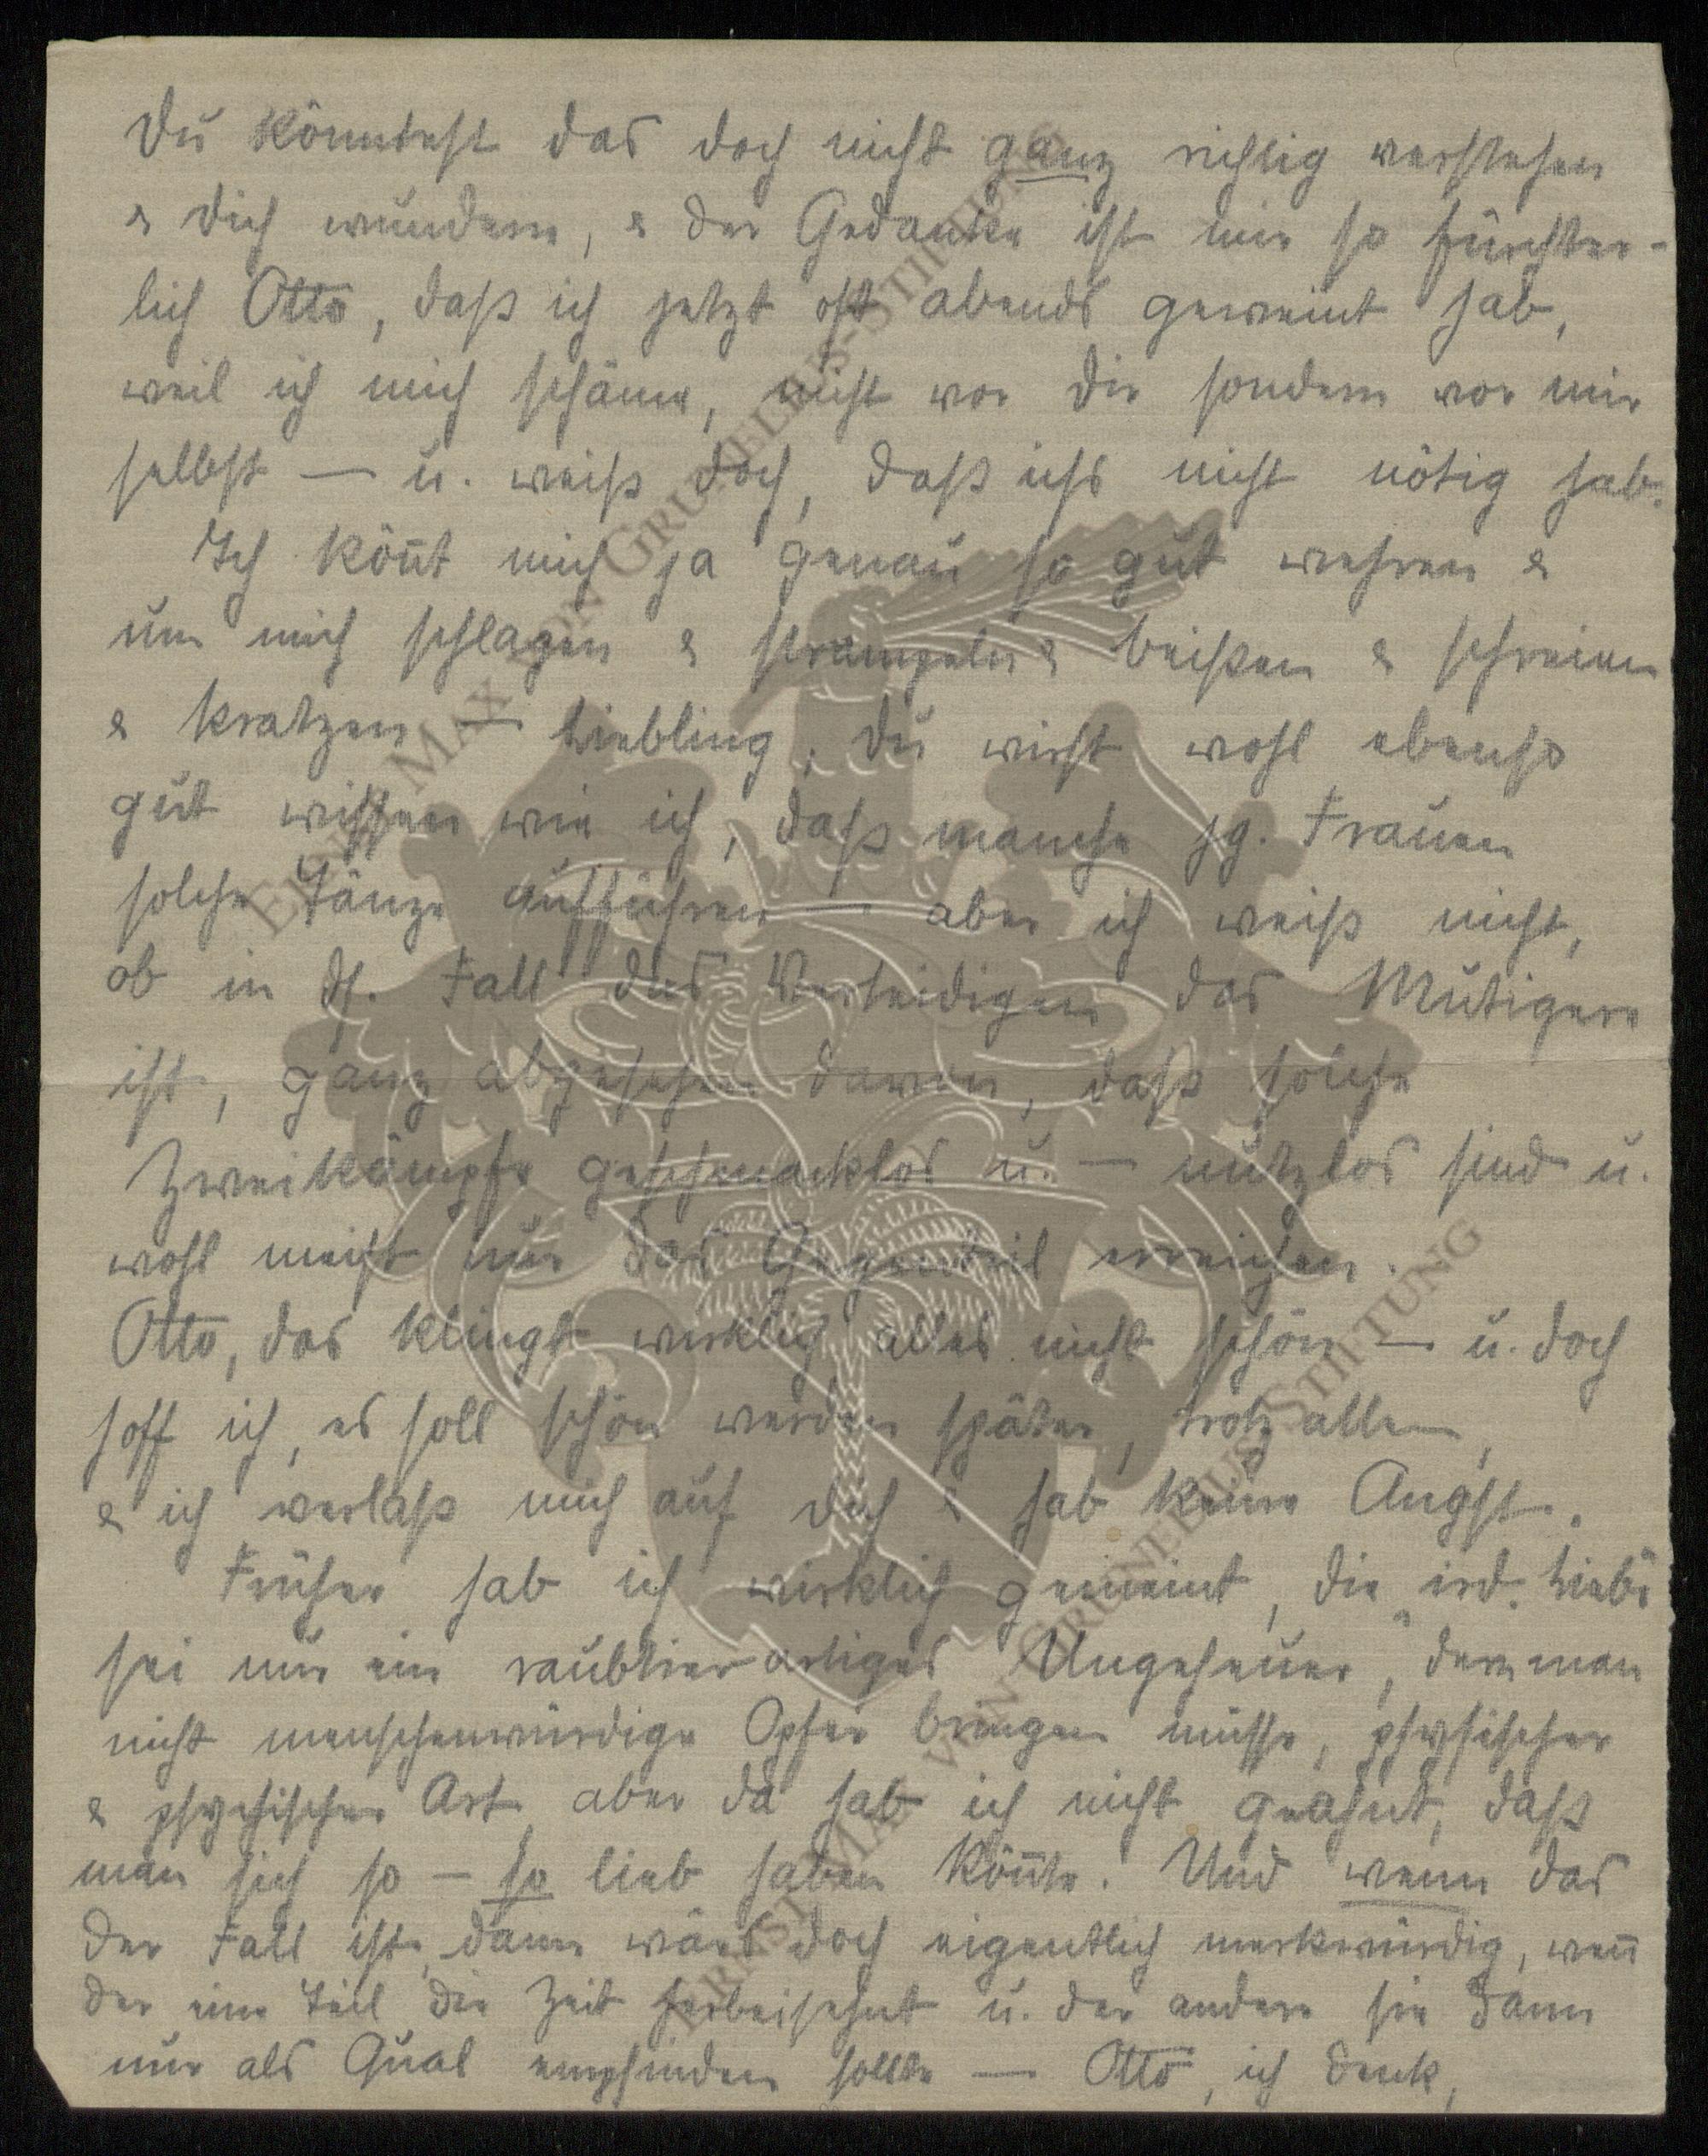 Du könntest das doch nicht ganz richtig verstehen
& dich wundern, & der Gedanke ist mir so fürchter-
lich Otto, daß ich jetzt oft abends geweint hab,
weil ich mich schäme, nicht vor dir sondern vor mir
selbst — u. weiß doch, daß ichs nicht nötig hab.
Ich kön̄t mich ja genau so gut wehren &
um mich schlagen & strampeln & beißen & schreien
& kratzen — Liebling, du wirst wohl ebenso
gut wissen wie ich, daß manche jg. Frauen
solche Tänze aufführen — aber ich weiß nicht,
ob in ds. Fall das Verteidigen das Mutigere
ist, ganz abgesehen davon, daß solche
Zweikämpfe geschmacklos u. — nutzlos sind u.
wohl meist nur das Gegenteil erreichen.
Otto, das klingt wirklich alles nicht schön — u. doch
hoff ich, es soll schön werden später, trotz allem,
& ich verlaß mich auf dich & hab keine Angst.
Früher hab ich wirklich gemeint, die „ird. Liebe"
sei nur ein raubtierartiges Ungeheuer, dem man
nicht menschenwürdige Opfer bringen müsse, physischer
& psychischer Art, aber da hab ich nicht geahnt, daß
man sich so — so lieb haben kön̄te. Und wenn das
der Fall ist, dann wärs doch eigentlich merkwürdig, wen̄
der eine Teil die Zeit herbeisehnt u. der andere sie dann
nur als Qual empfinden sollte — Otto, ich denk,
ERNST MAX VON GRUNELIUS-STIFTUNG
ERNST MAX VON GRUNELIUS-STIFTUNG